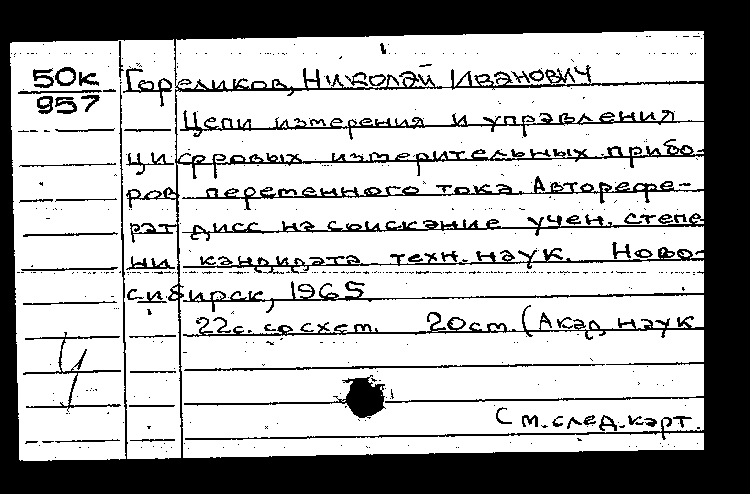 50к
957
Гореликов, Николай Иванович
Цепи измерения и управления
цифровых измерительных прибо-
ров переменного тока. Авторефе-
рат дисс на соискание учен. степе
ни кандидата техн. наук. Ново-
сибирск, 1965.
22с. со схем. 20см. (Акад. наук
См. след. карт.